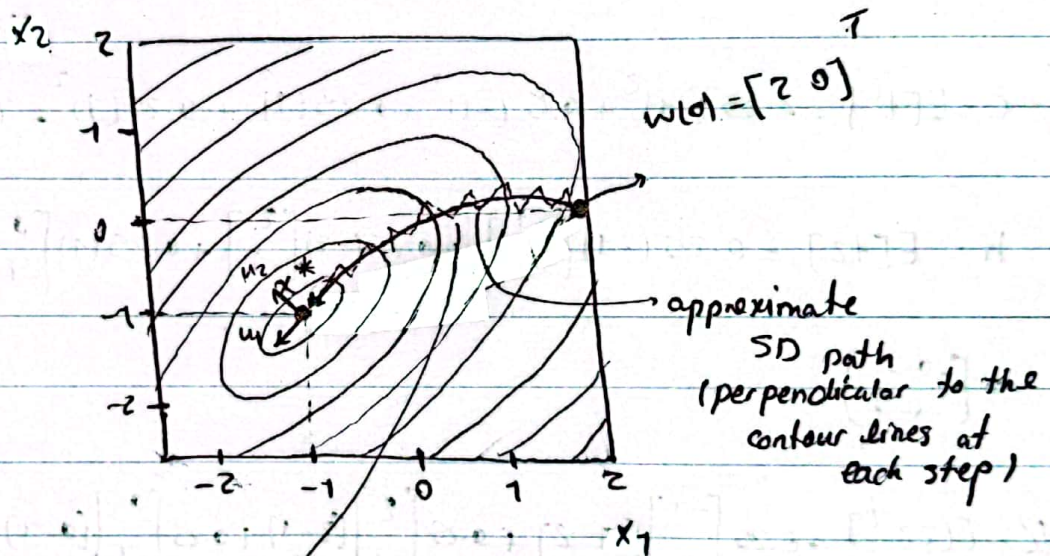 x2
2
1
0
-1
-2
-2 -1 0 1 2
x1
T
w(0) = [2 0]
x*
u2
u1
approximate
SD path
(perpendicular to the
contour lines at
each step)